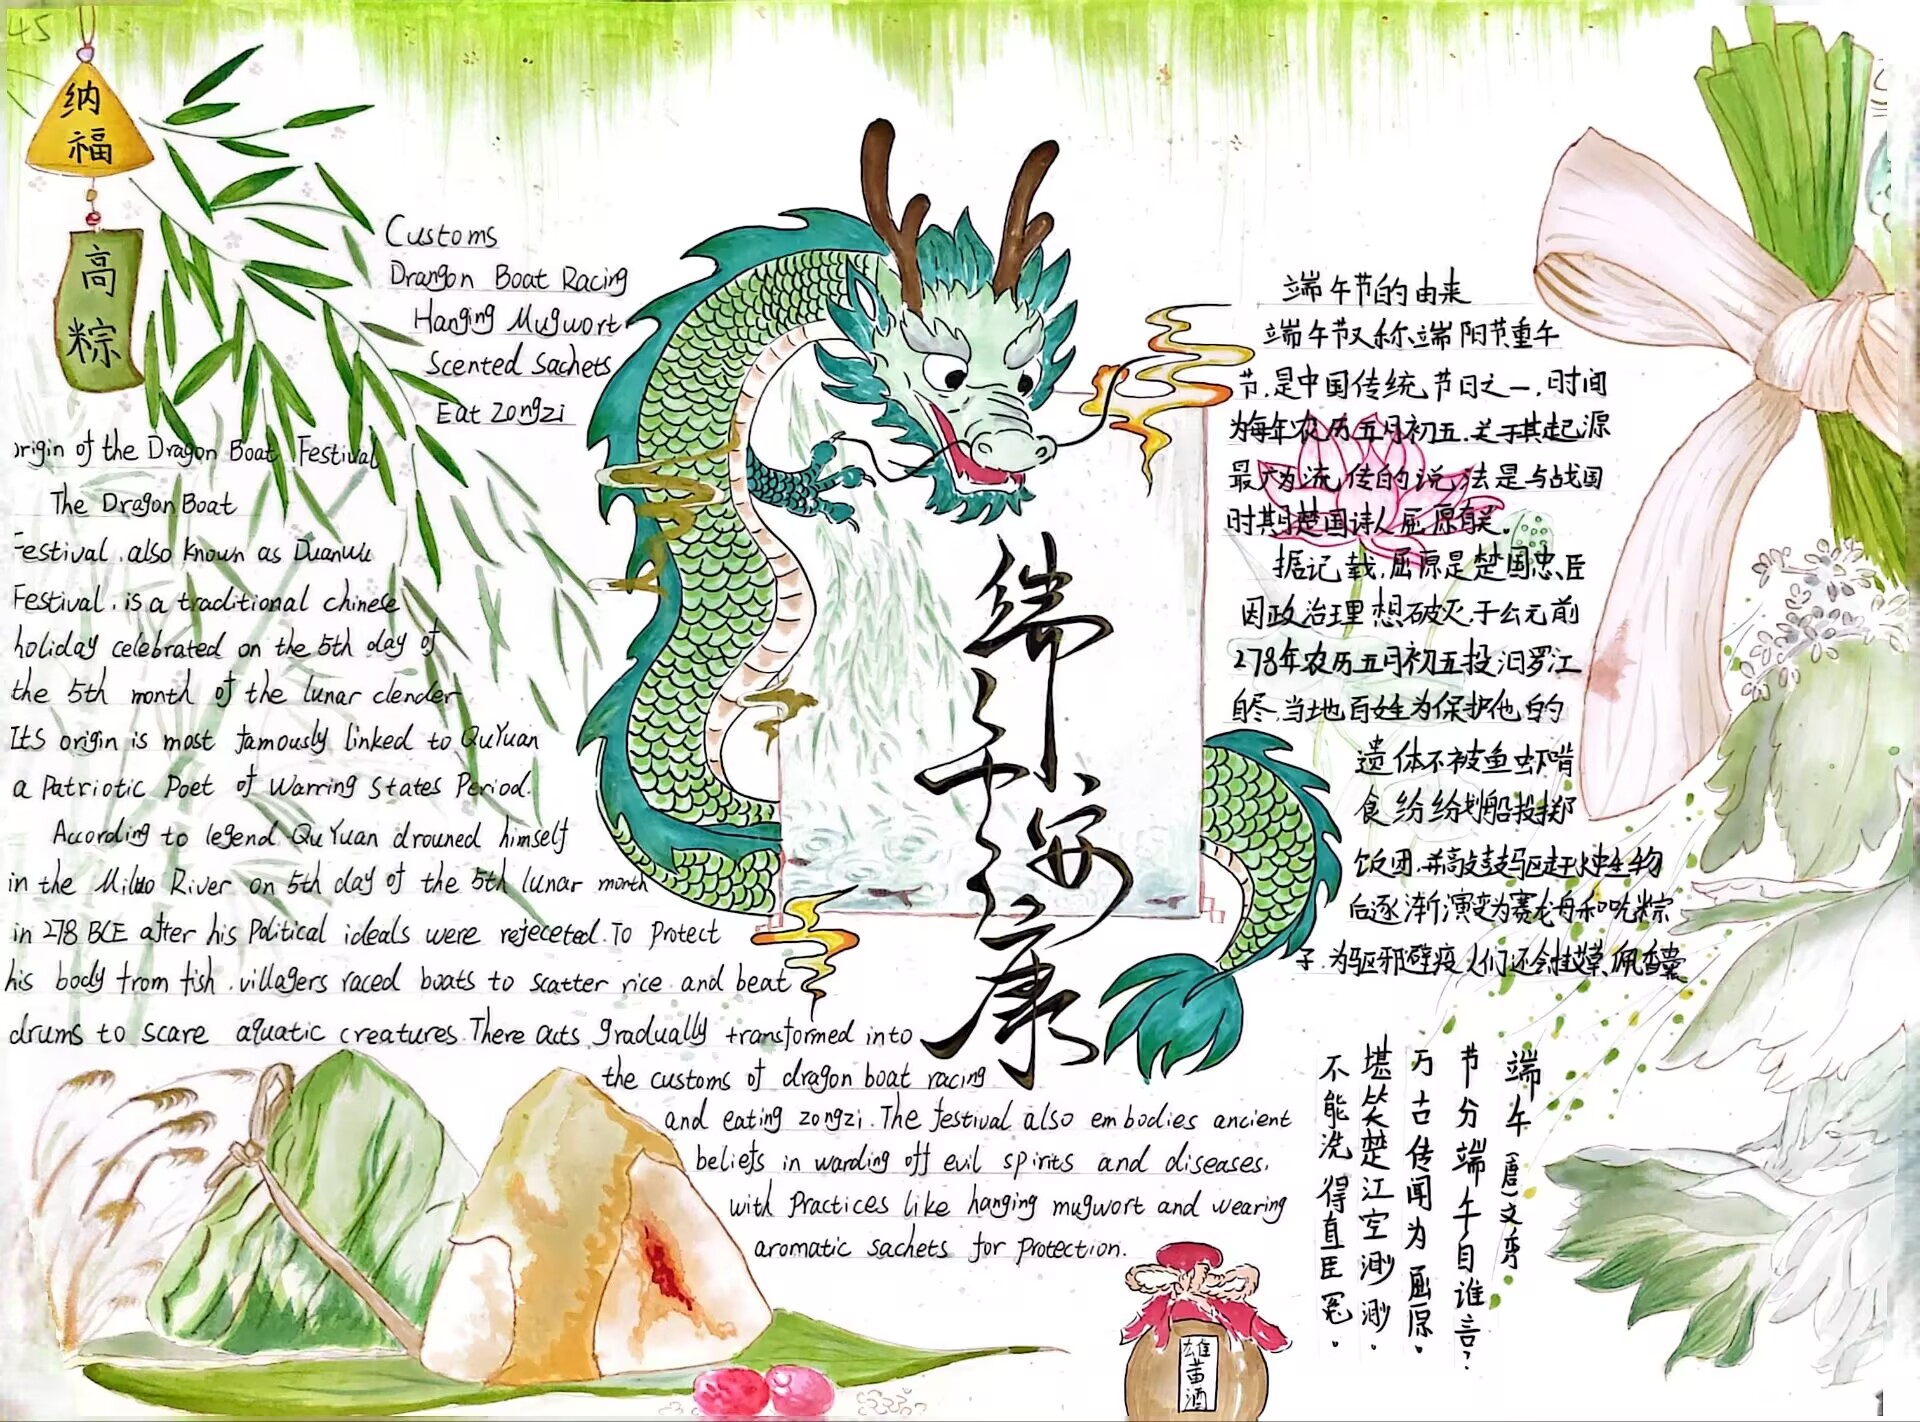 45
纳
福
高
粽
Customs
Drangon Boat Racing
Hanging Mugwort
Scented Sachets
Eat zongzi
origin of the Dragon Boat Festival
The Dragon Boat
Festival, also known as Duanwu
Festival, is a traditional chinese
holiday celebrated on the 5th day of
the 5th month of the lunar clender
Its origin is most famously linked to QuYuan
a Patriotic Poet of Warring States Period.
According to legend QuYuan drouned himself
in the Miluo River on 5th day of the 5th lunar month
in 278 BCE after his Political ideals were rejeceted. To Protect
his body from fish, villagers raced boats to scatter rice and beat
drums to scare aquatic creatures. There acts gradually transformed into
the customs of dragon boat racing
and eating zongzi. The festival also embodies ancient
beliefs in warding off evil spirits and diseases,
with Practices like hanging mugwort and wearing
aromatic sachets for Protection.
端午安康
端午节的由来
端午节又称、端阳节、重午
节,是中国传统节日之一,时间
为每年农历五月初五.关于其起源
最广为流传的说法是与战国
时期楚国诗人屈原有关.
据记载,屈原是楚国忠臣
因政治理想破灭,于公元前
278年农历五月初五投汨罗江
自尽,当地百姓为保护他的
遗体不被鱼虾啃
食纷纷划船投掷
饭团,并敲鼓驱赶水中生物
后逐渐演变为赛龙舟和吃粽
子.为驱邪避疫人们还会挂艾草、佩香囊
端午(唐)文秀
节分端午自谁言?
万古传闻为屈原。
堪笑楚江空渺渺。
不能洗得直臣冤。
雄黄酒